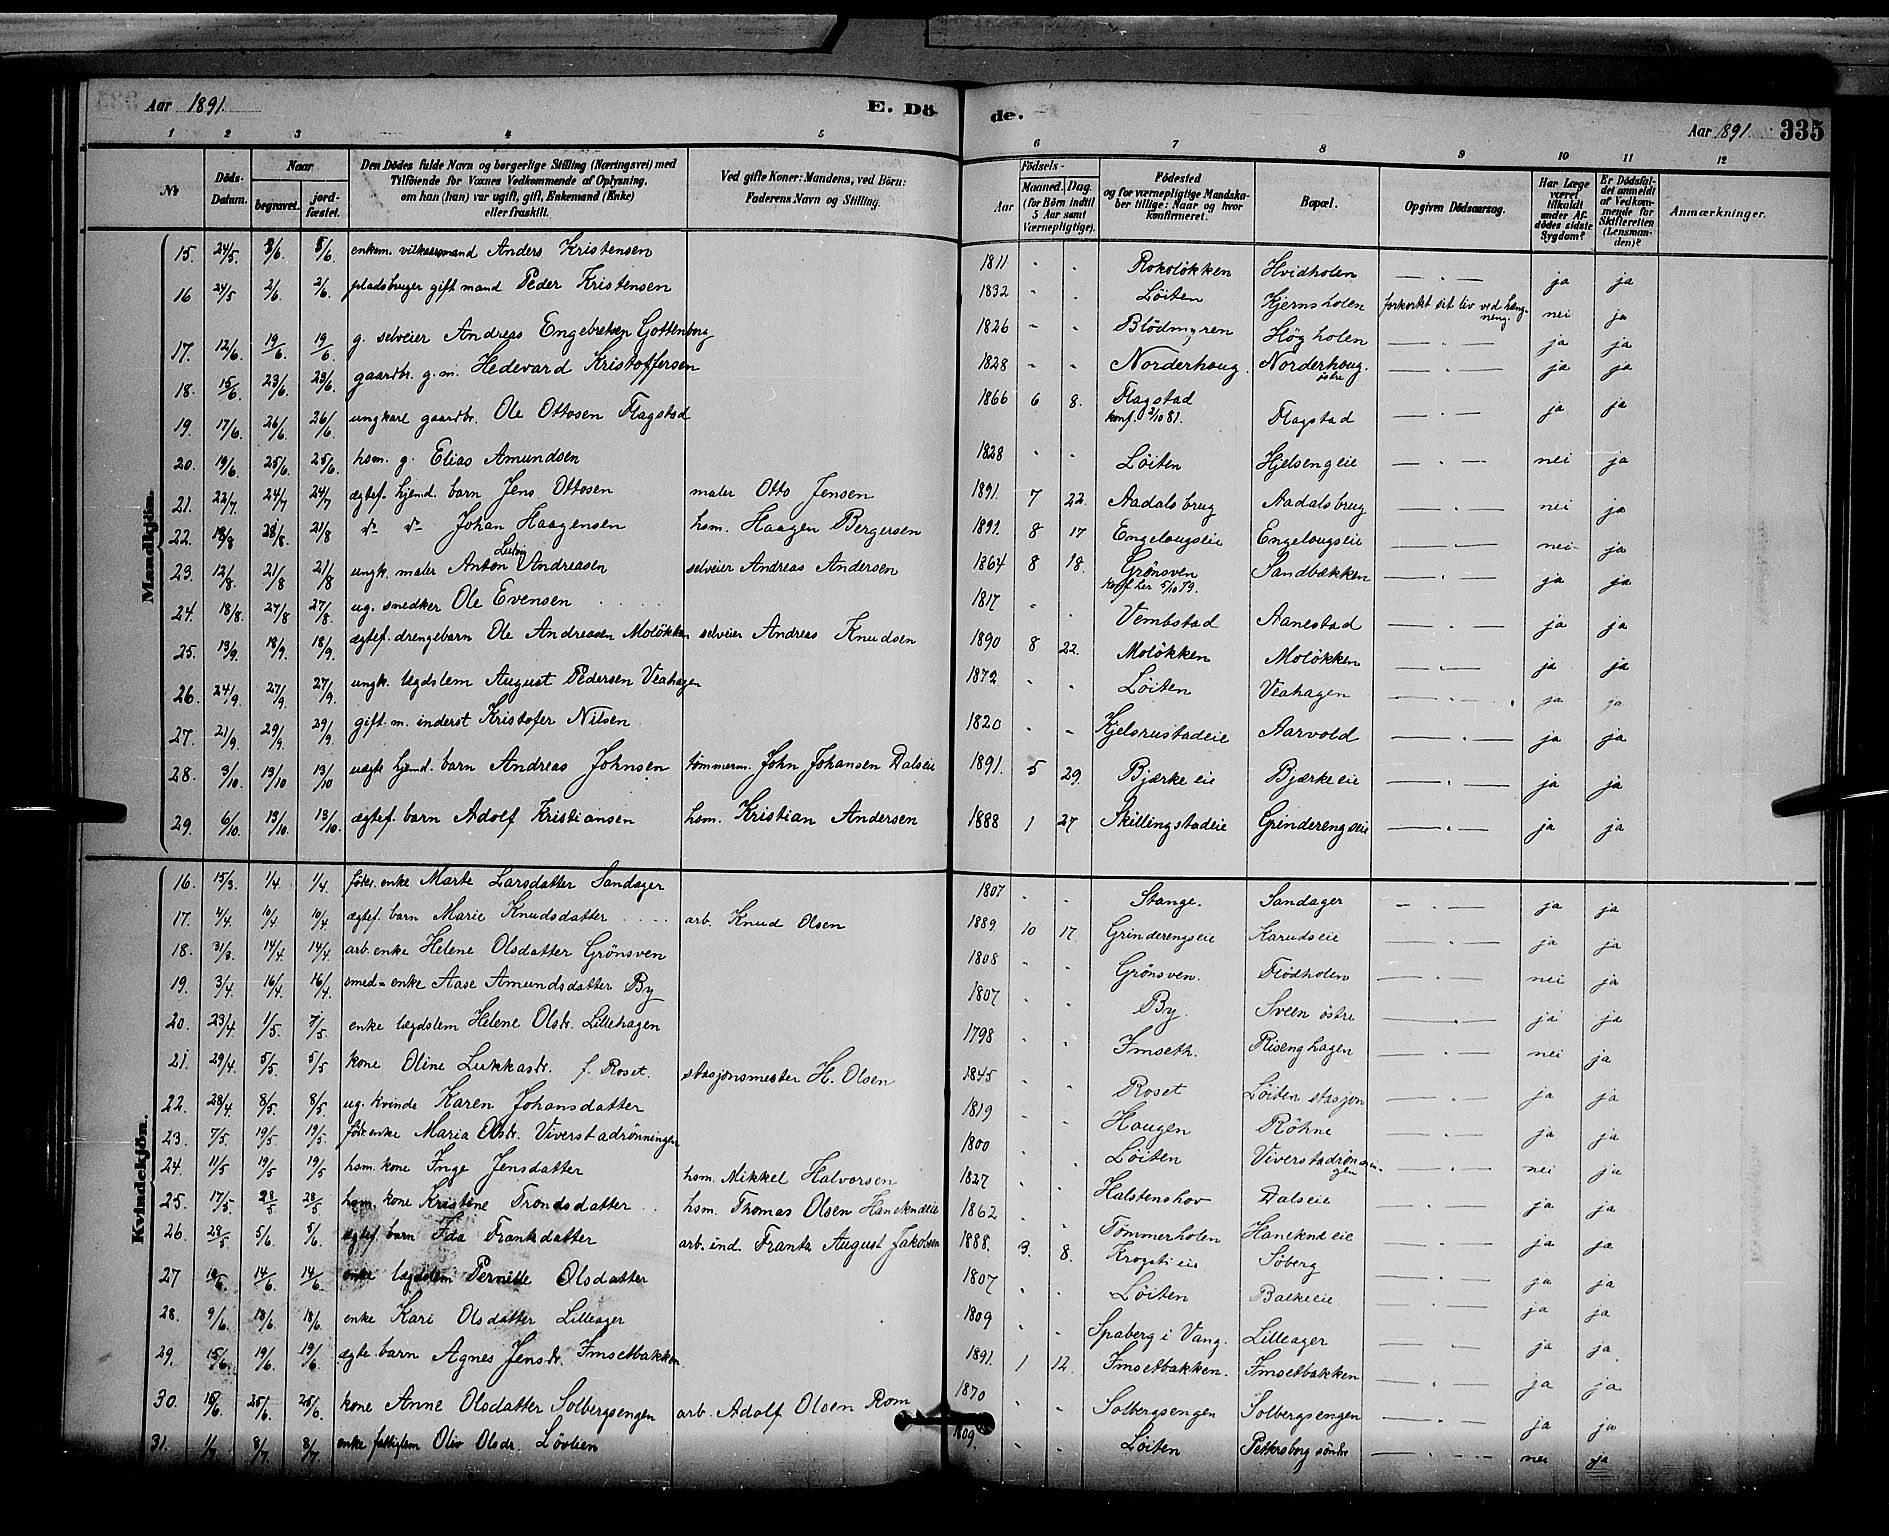 Aar 1891. E. Dö de. Aar 1891. 335
1 2 3 4 5 6 7 8 9 10 11 12
No Döds-Datum. Naar begravet. jordfæstet. Den Dödes fulde Navn og borgerlige Stilling (Næringsvei) med Tilföiende for Voxnes Vedkommende af Oplysning, om han (hun) var ugift, gift, Enkemand (Enke) eller fraskilt. Ved gifte Koner: Mandens, ved Börn: Faderens Navn og Stilling. Födsels- Aar Maaned. Dag. (for Börn indtil 5 Aar samt Værnepligtige). Födested og for værnepligtige Mandskaber tillige: Naar og hvor konfirmeret. Bopæl. Opgiven Dödsaarsag. Har Læge været tilkaldt under Afdödes sidste Sygdom? Er Dödsfaldet anmeldt af Vedkommende for Skifteretten (Lensmanden)? Anmærkninger.
Mandkjön.
15. 24/5 5/6. 5/6. enkem. vilkaarsmand Anders Kristensen 1811 " " Rokoløkken Hvidholen — " — ja ja
16 24/5 2/6. 2/6. pladsbruger gift mand Peder Kristensen 1832 " " Løiten Kjernsholen forkortet sit liv ved hængning. nei ja
17. 12/6. 19/6. 19/6. g. selveier Andreas Engebretsen Gottenborg 1826 " " Blödmyren Høgholen — " — ja ja
18. 15/6. 23/6. 23/6. gaardbr. g. m. Hedevard Kristoffersen 1828 " " Norderhoug. Norderhoug. østre — " — ja ja
19. 17/6. 26/6. 26/6. ungkarl gaardbr. Ole Ottosen Flagstad 1866 6 8. Flagstad konf. 2/10 81. Flagstad — " — ja ja
20. 19/6. 25/6. 25/6. hsm. g. Elias Amundsen 1828 " " Løiten Hjelsengeie — " — nei ja
21. 22/7. 24/7 24/7 ægtef. hjemd. barn Jens Ottosen maler Otto Jensen 1891. 7 22. Aadalsbrug Aadalsbrug — " — nei ja
22. 18/8 21/8. 21/8 do do Johan Haagensen hsm. Haagen Bergersen 1891. 8 17 Engelaugseie Engelaugseie — " — nei ja
23. 12/8. 21/8 21/8 ungk. maler Anton Ludvig Andreasen selveier Andreas Andersen 1864 8 18. Grönsven konf. her 5/10 79. Sandbækken — " — ja ja
24. 18/8. 27/8 27/8. ug. snedker Ole Evensen 1817 " " Vembstad Aanestad — " — ja ja
25. 13/9. 18/9. 18/9. ægtef. drengebarn Ole Andreasen Moløkken selveier Andreas Knudsen 1890 8 22. Moløkken Moløkken — " — ja ja
26. 24/9. 27/9. 27/9. ungk. lægdslem August Pedersen Veahagen 1872 " " Løiten Veahagen — " — ja ja
27. 21/9. 29/9. 29/9. gift. m. inderst Kristofer Nilsen 1820 " " Kjelsrustadeie Aarvold — " — ja ja
28. 3/10. 13/10 13/10 uægte hjemd. barn Andreas Johnsen tømmerm. John Johansen Dalseie 1891. 5 29. Bjærke eie Bjærke eie — " — ja ja
29. 6/10. 13/10. 13/10. ægtef. barn Adolf Kristiansen hsm. Kristian Andersen 1888 1 27 Skillingstadeie Grinderengseie — " — ja ja
Kvindekjön.
16. 15/3. 1/4 1/4. føder. enke Marte Larsdatter Sandager 1807 " " Stange. Sandager — " — ja ja
17. 4/4. 10/4 10/4 ægtef. barn Marie Knudsdatter arb. Knud Olsen 1889. 10 17. Grinderengseie Karudseie — " — ja ja
18. 31/3. 14/4 14/4 arb. enke Helene Olsdatter Grönsven 1808 " " Grönsven. Flodholen — " — nei ja
19. 3/4. 16/4 16/4 smed= enke Aase Amundsdatter By 1807 " " By. Sveen östre — " — ja ja
20. 23/4 1/5 7/5 enke lægdslem Helene Olsdr. Lillehagen 1798 " " Imseth. Risenghagen — " — nei ja
21 29/4. 5/5 5/5 kone Oline Lukkasdr. f. Roset. stasjonsmester H. Olsen 1845 " " Roset Løiten stasjon — " — ja ja
22. 28/4. 8/5 8/5 ug. kvinde Karen Johansdatter 1819 " Haugen Röhne — " — ja ja
23. 7/5 19/5 19/5 föder. enke Maria Olsdr. Viverstadrønningen 1800 " " Løiten Viverstadrønningen — " — nei ja
24. 11/5 19/5 19/5 hsm. kone Inge Jensdatter hsm. Mikkel Halvorsen 1827 " Halstenshov Dalseie — " — ja ja
25. 17/5 28/5 28/5 hsm. kone Kristine Trondsdatter hsm. Thomas Olsen Hanekneeie 1862 " " Tømmerholen Hanekneeie — " — ja ja
26. 28/5 5/6 5/6 ægtef. barn Ida Frantsdatter arb. ind. Frants August Jakobsen 1888. 3. 8. Krogsti eie Søberg — " — ja ja
27 14/6 14/6 enke lægdslem Pernille Olsdatter 1807 " " Løiten Balkeeie — " — ja ja
28. 9/6. 18/6. 18/6. enke Kari Olsdatter Lilleager 1809 " " Spaberg i Vang. Lilleager — " — ja ja
29. 15/6. 19/6. 19/6 ægte. barn Agnes Jensdr. Imsetbakken 1891. 1 12. Imsetbakken. Imsetbakken — " — ja ja
30. 18/6. 25/6. 25/6. kone Anne Olsdatter Solbergsengen arb. Adolf Olsen Rom 1870 " " Solbergsengen Solbergsengen — " — ja ja
31. 1/7 8/7. 8/7. enke fattiglem Oliv Olsdr. Løvlien 1809. " " Løiten Pettersborg søndre — " — nei ja